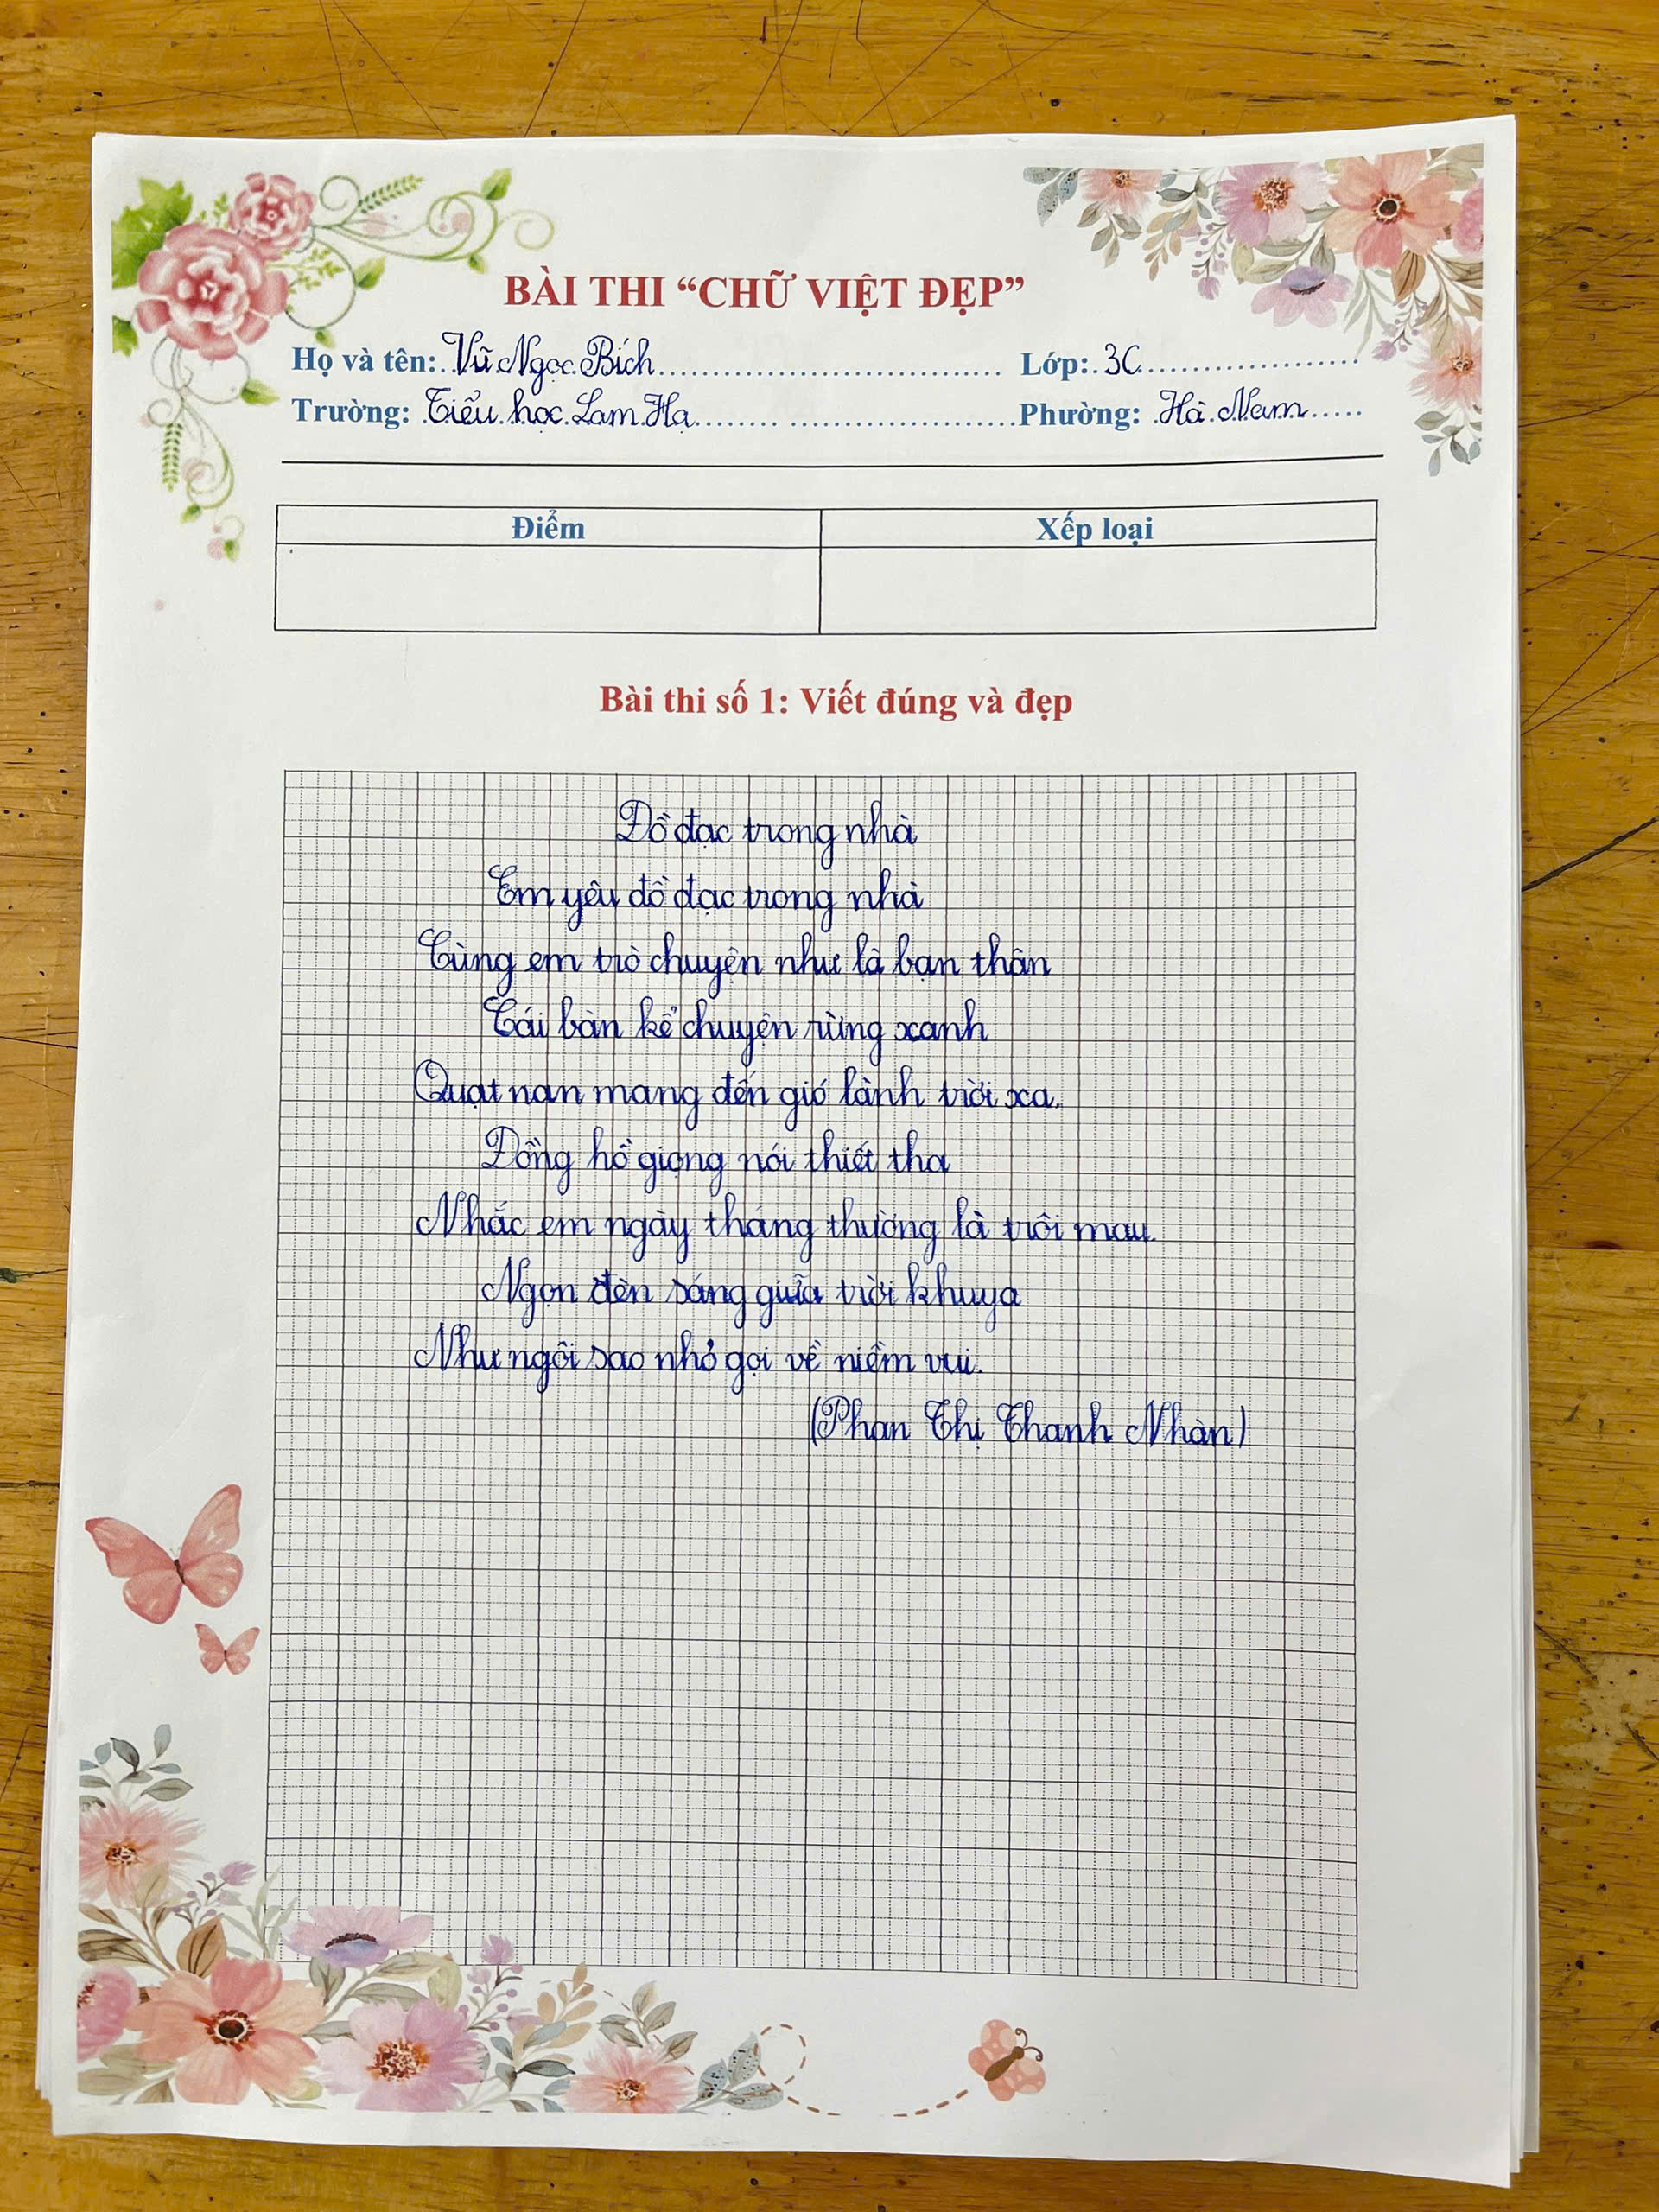 BÀI THI “CHỮ VIỆT ĐẸP”
Họ và tên: Vũ Ngọc Bích Lớp: 3C
Trường: Tiểu học Lam Hạ Phường: Hà Nam
Điểm Xếp loại
Bài thi số 1: Viết đúng và đẹp
Đồ đạc trong nhà
Em yêu đồ đạc trong nhà
Cùng em trò chuyện như là bạn thân
Cái bàn kể chuyện rừng xanh
Quạt nan mang đến gió lành trời xa.
Đồng hồ giọng nói thiết tha
Nhắc em ngày tháng thường là trôi mau.
Ngọn đèn sáng giữa trời khuya
Như ngôi sao nhỏ gọi về niềm vui.
(Phan Thị Thanh Nhàn)